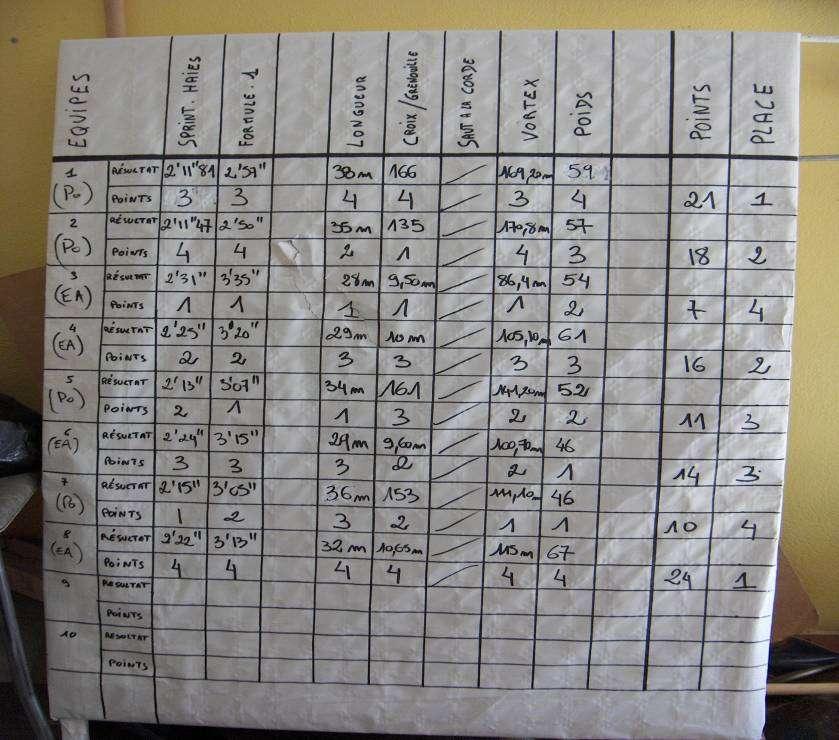 EQUIPES SPRINT. HAIES FORMULE. 1 LONGUEUR CROIX/GRENOUILLE SAUT A LA CORDE VORTEX POIDS POINTS PLACE
1 (Po) RÉSULTAT 2'11"81 2'57" 38m 166 169,20m 59
POINTS 3 3 4 4 3 4 21 1
2 (Po) RÉSULTAT 2'11"47 2'50" 35m 135 170,8m 57
POINTS 4 4 2 1 4 3 18 2
3 (EA) RÉSULTAT 2'31" 3'35" 28m 9,50m 86,4m 54
POINTS 1 1 1 1 1 2 7 4
4 (EA) RÉSULTAT 2'25" 3'20" 29m 10m 105,10m 61
POINTS 2 2 3 3 3 3 16 2
5 (Po) RÉSULTAT 2'13" 3'07" 34m 161 141,20m 52
POINTS 2 1 1 3 2 2 11 3
6 (EA) RÉSULTAT 2'24" 3'15" 29m 9,60m 100,70m 46
POINTS 3 3 3 2 2 1 14 3
7 RÉSULTAT 2'15" 3'05" 36m 153 46
POINTS 1 2 3 2 1 1 10 4
8 (EA) RÉSULTAT 2'22" 3'13" 32m 10,65m 115m 67
POINTS 4 4 4 4 4 4 24 1
9 RÉSULTAT
POINTS
10 RÉSULTAT
POINTS